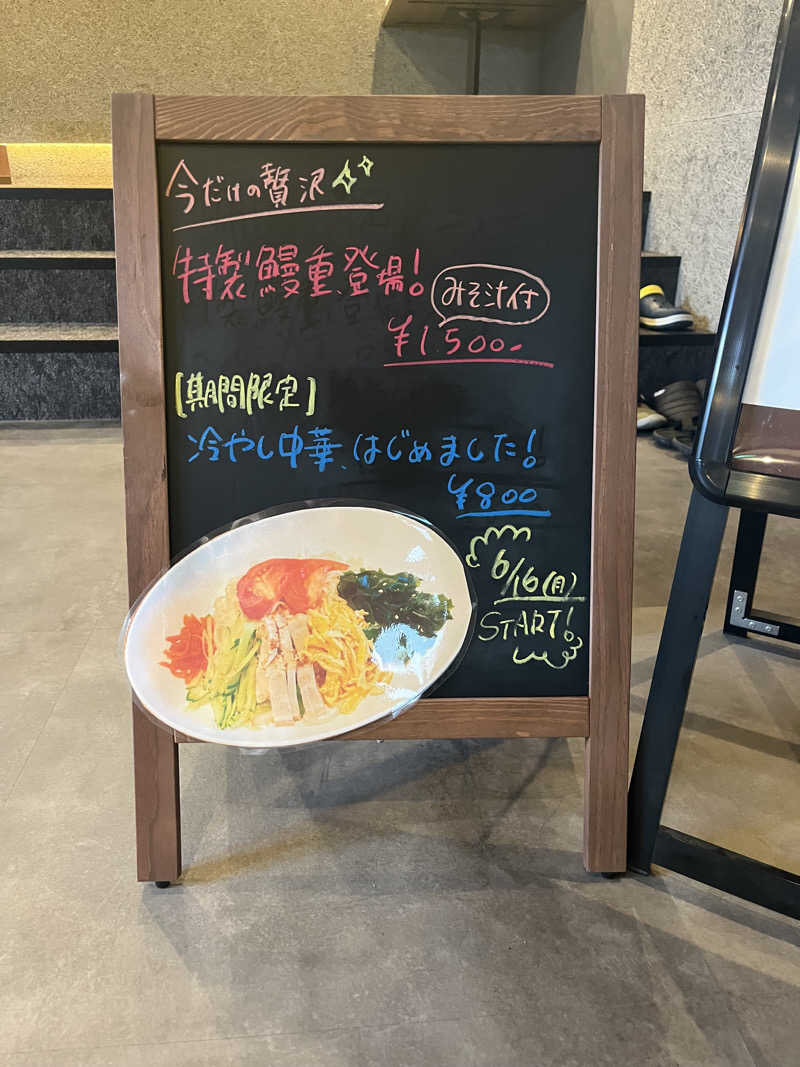 今だけの贅沢
特製鰻重、登場!
みそ汁付
¥1,500-
[期間限定]
冷やし中華、はじめました!
¥800
6/16(月)
START!